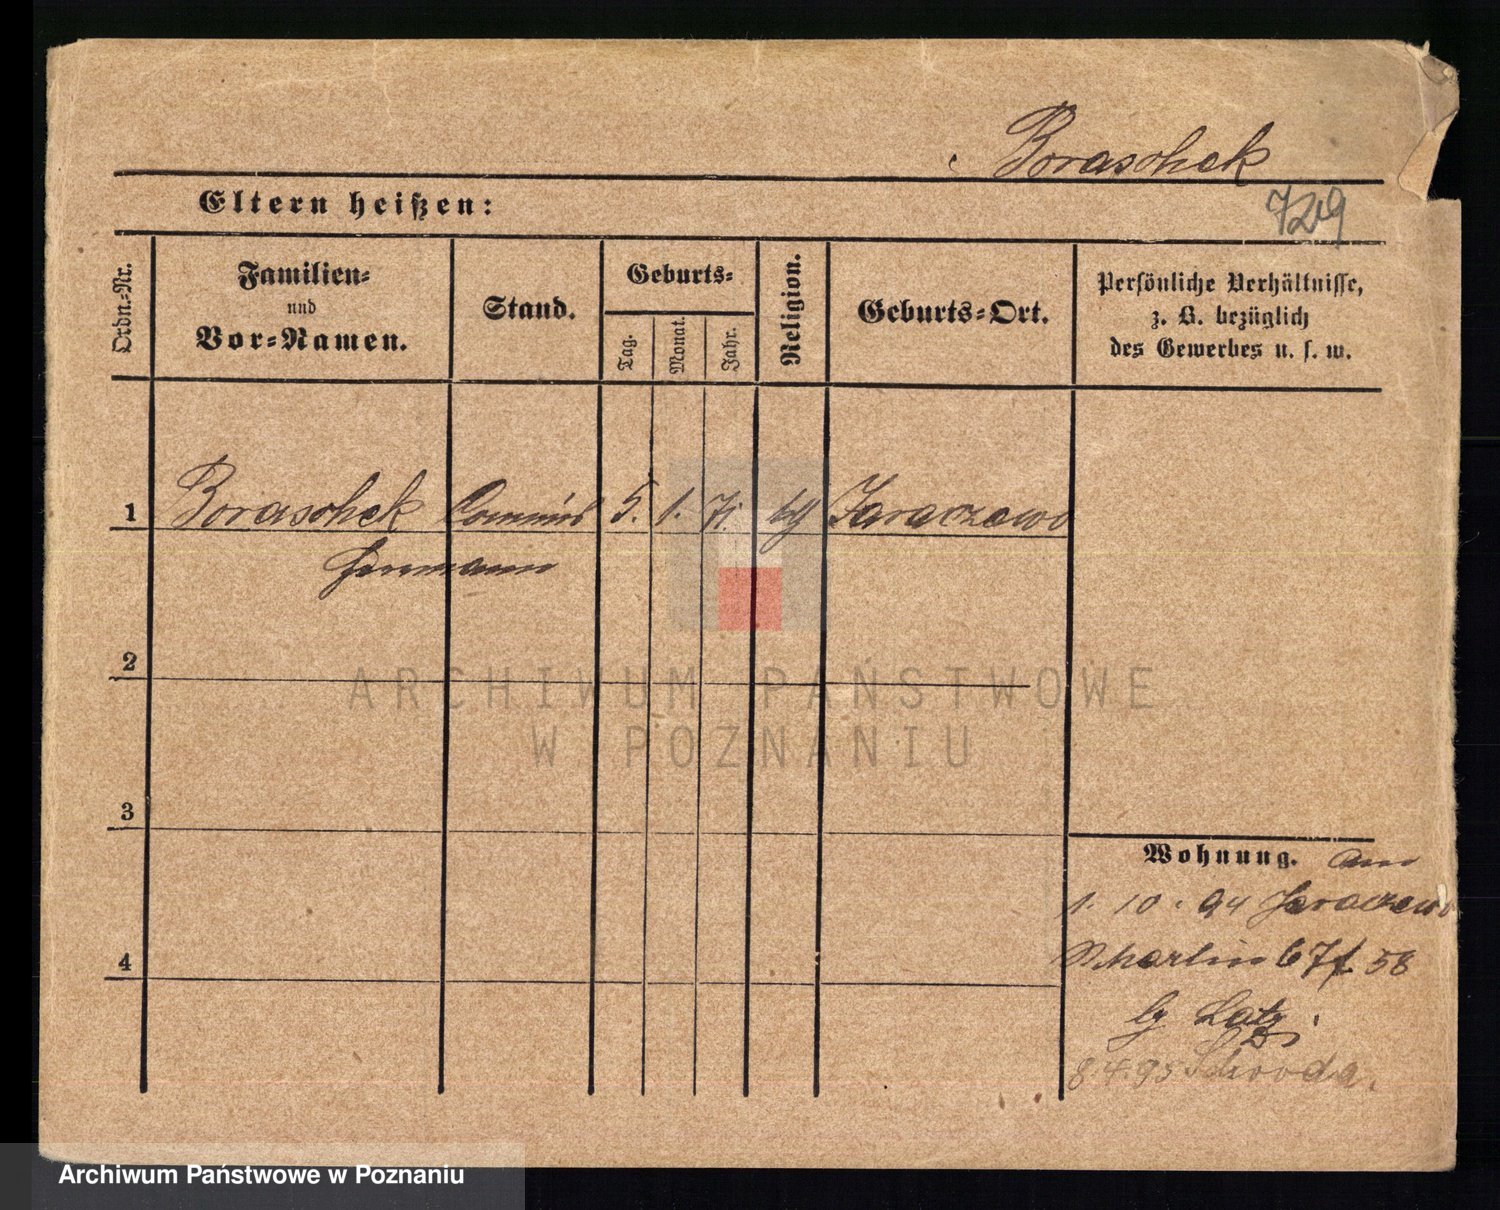 Boraschek
Eltern heißen:
729
Ordn.-Nr.
Familien-
und
Vor-Namen.
Stand.
Geburts-
Tag.
Monat.
Jahr.
Religion.
Geburts-Ort.
Persönliche Verhältnisse,
z. B. bezüglich
des Gewerbes u. s. w.
1 Boraschek Commis 5. 1. 71. Jaraczewo
Hermann
2
ARCHIWUM PAŃSTWOWE
W POZNANIU
3
4
Wohnung. am
1. 10. 94 Jaraczewo
58
Latz
8.4.95 Schroda.
Archiwum Państwowe w Poznaniu